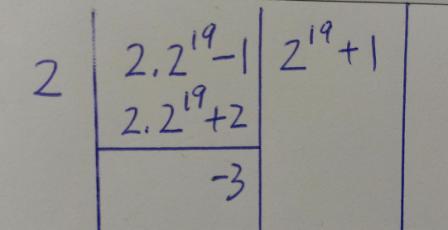 2 | 2.2¹⁹-1 | 2¹⁹+1
2.2¹⁹+2
-3